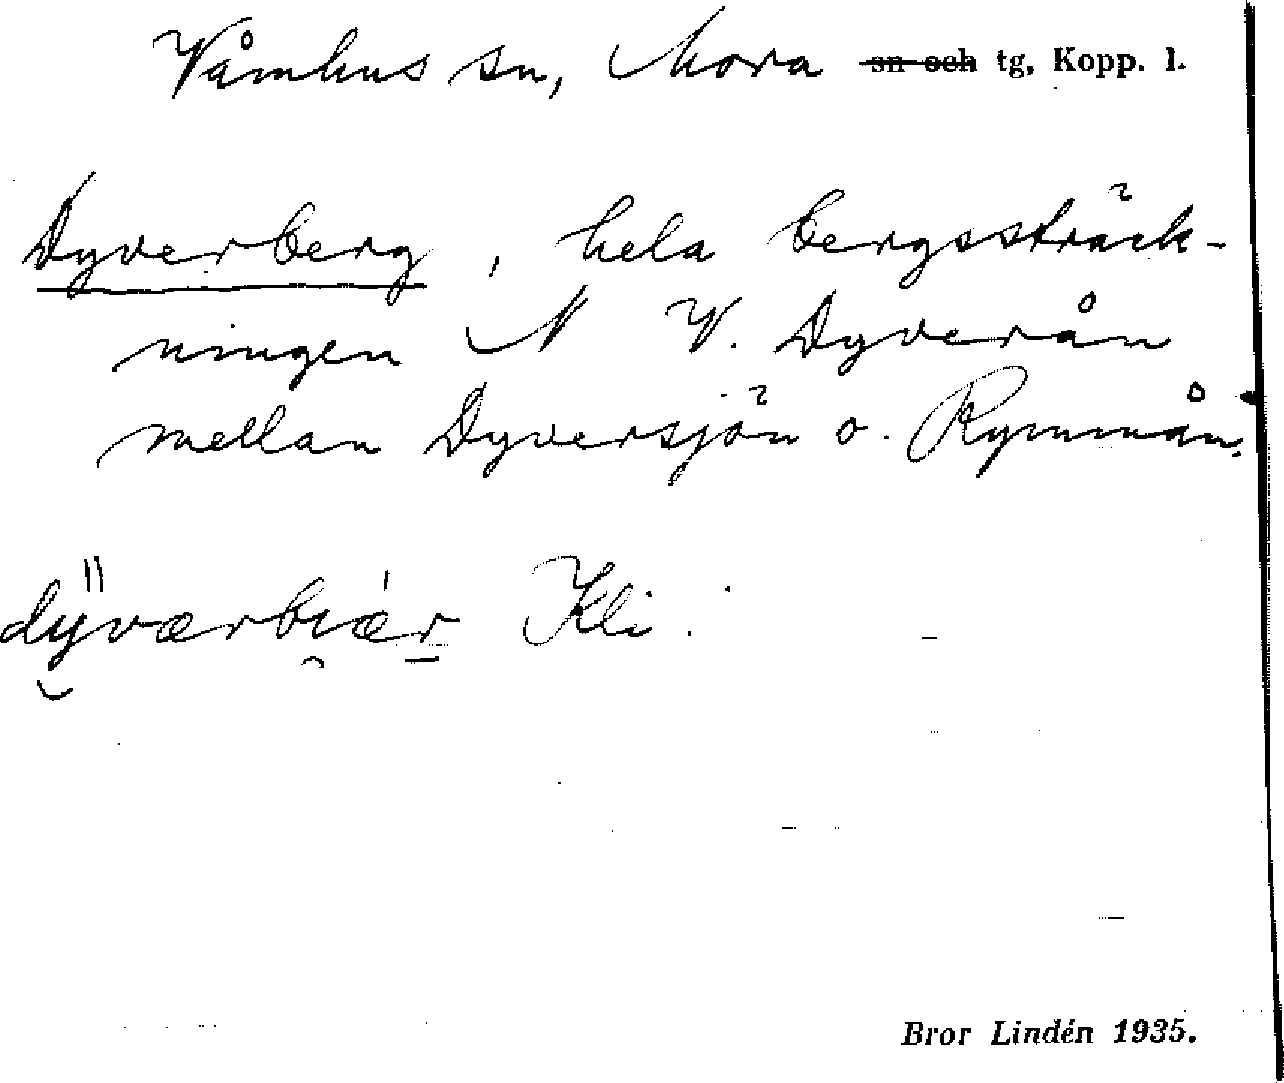 Våmhus sn, Mora sn och tg, Kopp. l.
Dyverberg, hela bergssträck-
ningen N V. Dyverån
mellan Dyversjön o. Rymmån.
dÿværbıær Kli.
Bror Lindén 1935.